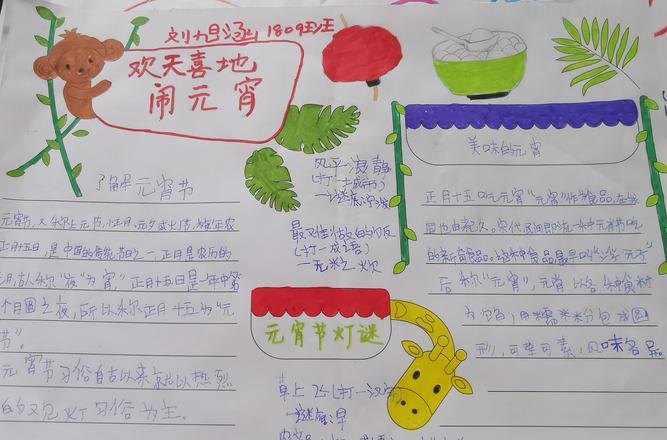 1809班
欢天喜地
闹元宵
了解元宵节
元宵节，又称上元节、小正月、元夕或灯节，为每年农
正月十五日，是中国的传统节日之一，正月是农历的
月，古人称"夜"为"宵"，正月十五日是一年中第
个月圆之夜，所以称正月十五为"元
节"。
元宵节习俗自古以来就以热烈
的观灯习俗为主。
风平浪静
(打一城市)
一谜底：宁波
最难做的饭
(打一成语)
一无米之炊
元宵节灯谜
草上飞(打一汉字)
一谜底：早
美味的元宵
正月十五吃元宵"元宵"作为食品，在我
国也由来已久。宋代，民间即流行一种元宵节吃
的新奇食品。这种食品最早叫"浮元子"
后称"元宵"，元宵以各种食材
为馅，用糯米粉包成圆
形，可荤可素，风味各异